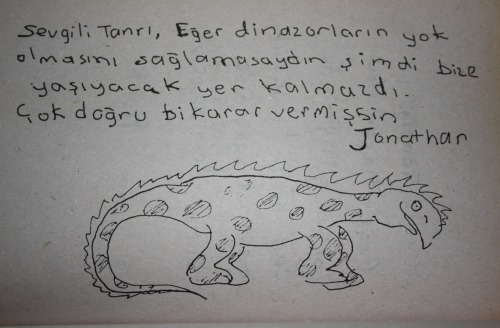 Sevgili Tanrı, Eğer dinazorların yok
olmasını sağlamasaydın şimdi bize
yaşıyacak yer kalmazdı.
Çok doğru bi karar vermişsin
Jonathan